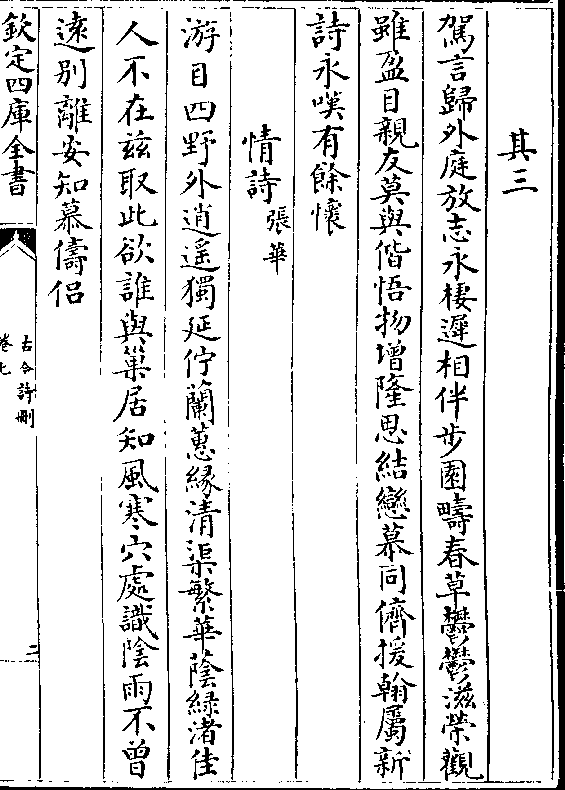 其三
駕言歸外庭放志永棲遲相伴步園疇春草鬱鬱滋榮觀
雖盈目親友莫與偕悟物增隆思結戀慕同儕援翰屬新
詩永嘆有餘懷
情詩張華
游目四野外逍遥獨延佇蘭蕙縁清渠繁華蔭緑渚佳
人不在兹取此欲誰與巢居知風寒穴處識陰雨不曾
逺别離安知慕儔侣
欽定四庫全書
古今詩刪
卷七
二